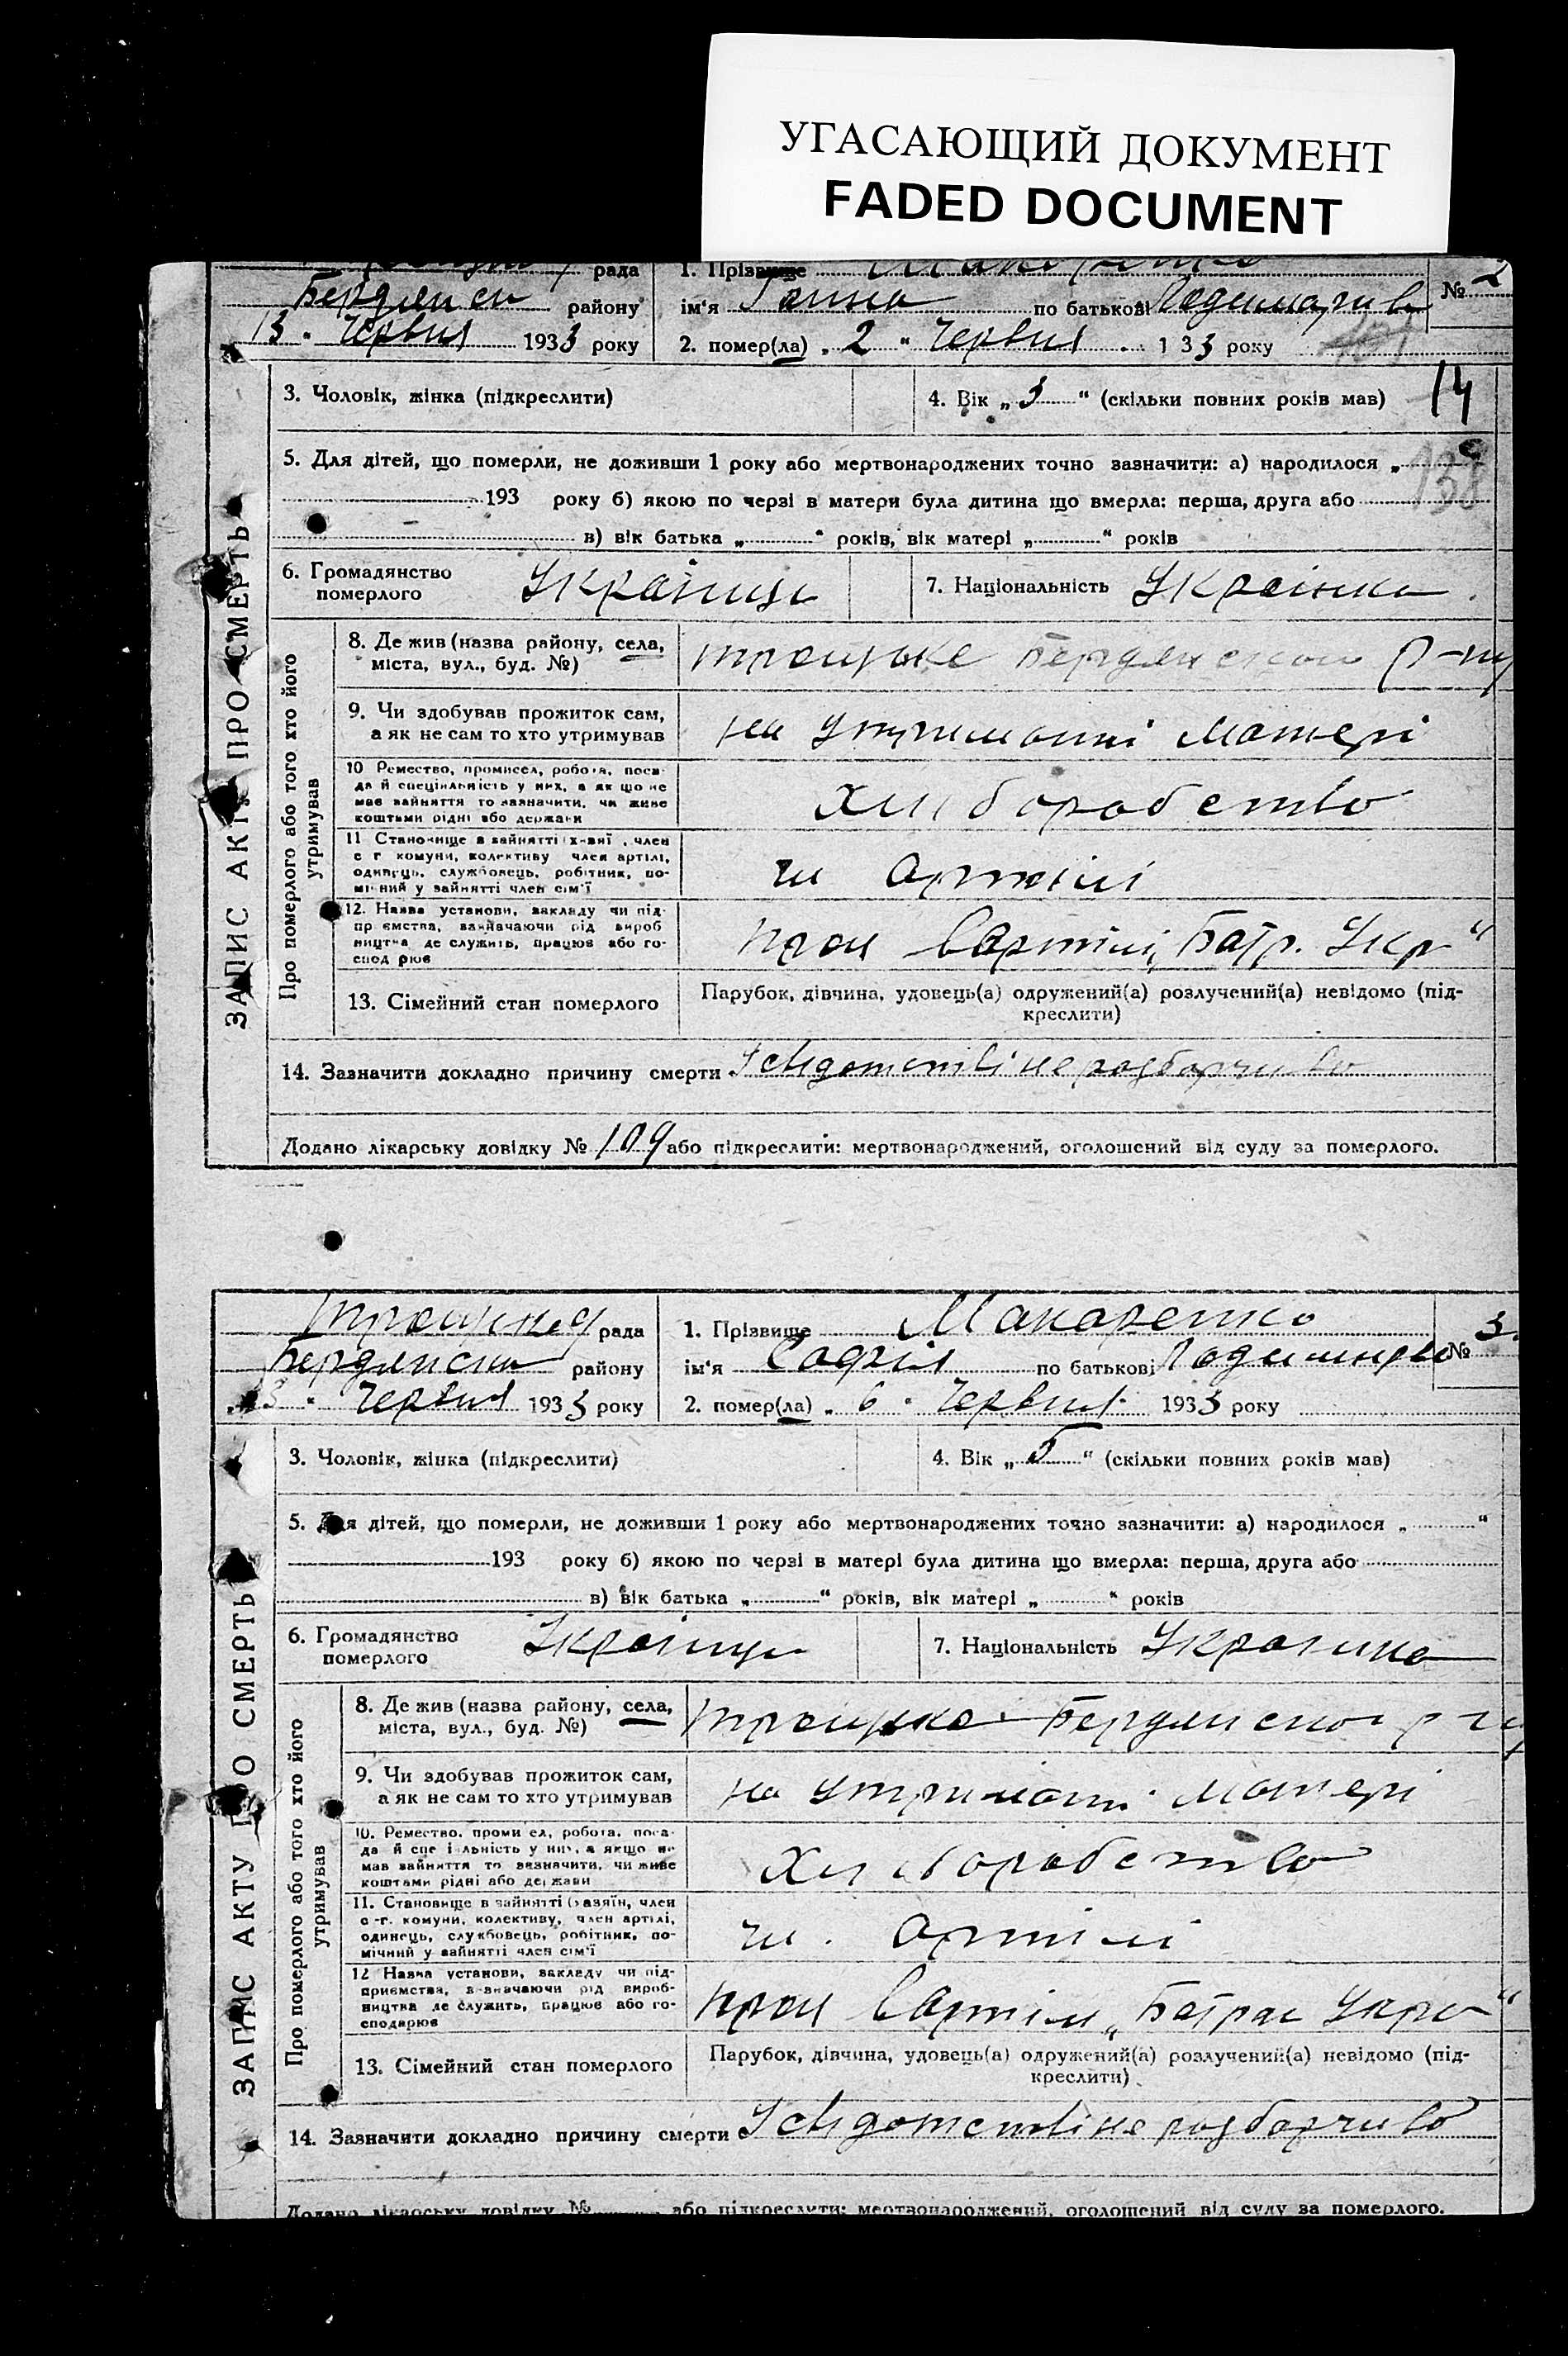 УГАСАЮЩИЙ ДОКУМЕНТ
FADED DOCUMENT
рада
1. Прізвище
№ 2
району
ім'я Ганна по батькові
13 " Червня 1933 року
2. помер(ла) „ 2 " Червня 133 року
3. Чоловік, жінка (підкреслити)
4. Вік „ 3 " (скільки повних років мав)
14
5. Для дітей, що померли, не доживши 1 року або мертвонароджених точно зазначити: а) народилося „
138
193 року б) якою по черзі в матери була дитина що вмерла: перша, друга або
в) вік батька „ " років, вік матері „ " років
6. Громадянство
померлого
7. Національність Українка
ЗАПИС АКТУ ПРО СМЕРТЬ
Про померлого або того хто його
утримував
8. Де жив (назва району, села,
міста, вул., буд. №)
троицьке Бердянского р-ну
9. Чи здобував прожиток сам,
а як не сам то хто утримував
на утриманні матері
10 Ремество, промисел, робота, поса-
да й спеціяльність у них, а як що не
мав зайняття то зазначити, чи живе
коштами рідні або держави
хліборобство
11 Становище в зайнятті (х-вяї , член
с г комуни, колективу член артілі,
одинець, службовець, робітник, по-
мічний у зайнятті член сім'ї
чл артілі
12. Назва установи, закладу чи під-
приємства, зазначаючи рід вироб
ництва де служить, працює або го-
сподарює
Батр. Укр"
13. Сімейний стан померлого
Парубок, дівчина, удовець(а) одружений(а) розлучений(а) невідомо (під-
креслити)
14. Зазначити докладно причину смерти нерозборчиво
Додано лікарську довідку № 109 або підкреслити: мертвонароджений, оголошений від суду за померлого.
рада
1. Прізвище Макаренко
№ 3.
району
ім'я Софія по батькові
13 " Червня 1933 року
2. помер(ла) „ 6 " Червня 1933 року
3. Чоловік, жінка (підкреслити)
4. Вік „ 5 " (скільки повних років мав)
5. Для дітей, що померли, не доживши 1 року або мертвонароджених точно зазначити: а) народилося „ "
193 року б) якою по черзі в матері була дитина що вмерла: перша, друга або
в) вік батька „ " років, вік матері „ " років
6. Громадянство
померлого
7. Національність Украінка
ЗАПИС АКТУ ПРО СМЕРТЬ
Про померлого або того хто його
утримував
8. Де жив (назва району, села,
міста, вул., буд. №)
9. Чи здобував прожиток сам,
а як не сам то хто утримував
на утриманні матері
10. Ремество, промисел, робота, поса-
да й спеціяльність у них, а якщо не
мав зайняття то зазначити, чи живе
коштами рідні або держави
хліборобство
11. Становище в зайнятті (хазяїн, член
с-г. комуни, колективу, член артілі,
одинець, службовець, робітник, по-
мічний у зайнятті член сім'ї
чл. артілі
12 Назва установи, закладу чи під-
приємства, зазначаючи рід вироб-
ництва де служить, працює або го-
сподарює
„Батрак Укра"
13. Сімейний стан померлого
Парубок, дівчина, удовець(а) одружений(а) розлучений(а) невідомо (під-
креслити)
14. Зазначити докладно причину смерти нерозборчиво
Додано лікарську довідку № або підкреслити: мертвонароджений, оголошений від суду за померлого.